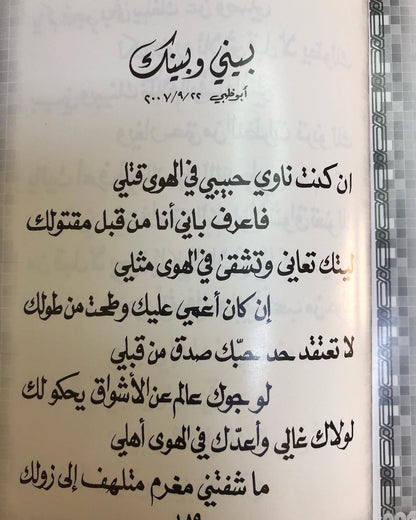 بيني وبينك
أبوظبي ٢٠٠٧/٩/٢٢
ان كنت ناوي حبيبي في الهوى قتلي
فاعرف باني أنا من قبل مقتولك
ليتك تعاني وتشقىٰ في الهوى مثلي
إن كان أغمي عليك وطحت من طولك
لا تعتقد حد حبّك صدق من قبلي
لو جوك عالم عن الأشواق يحكو لك
لولاك غالي وأعدّك في الهوى أهلي
ما شفتني مغرم متلهف إلى زولك